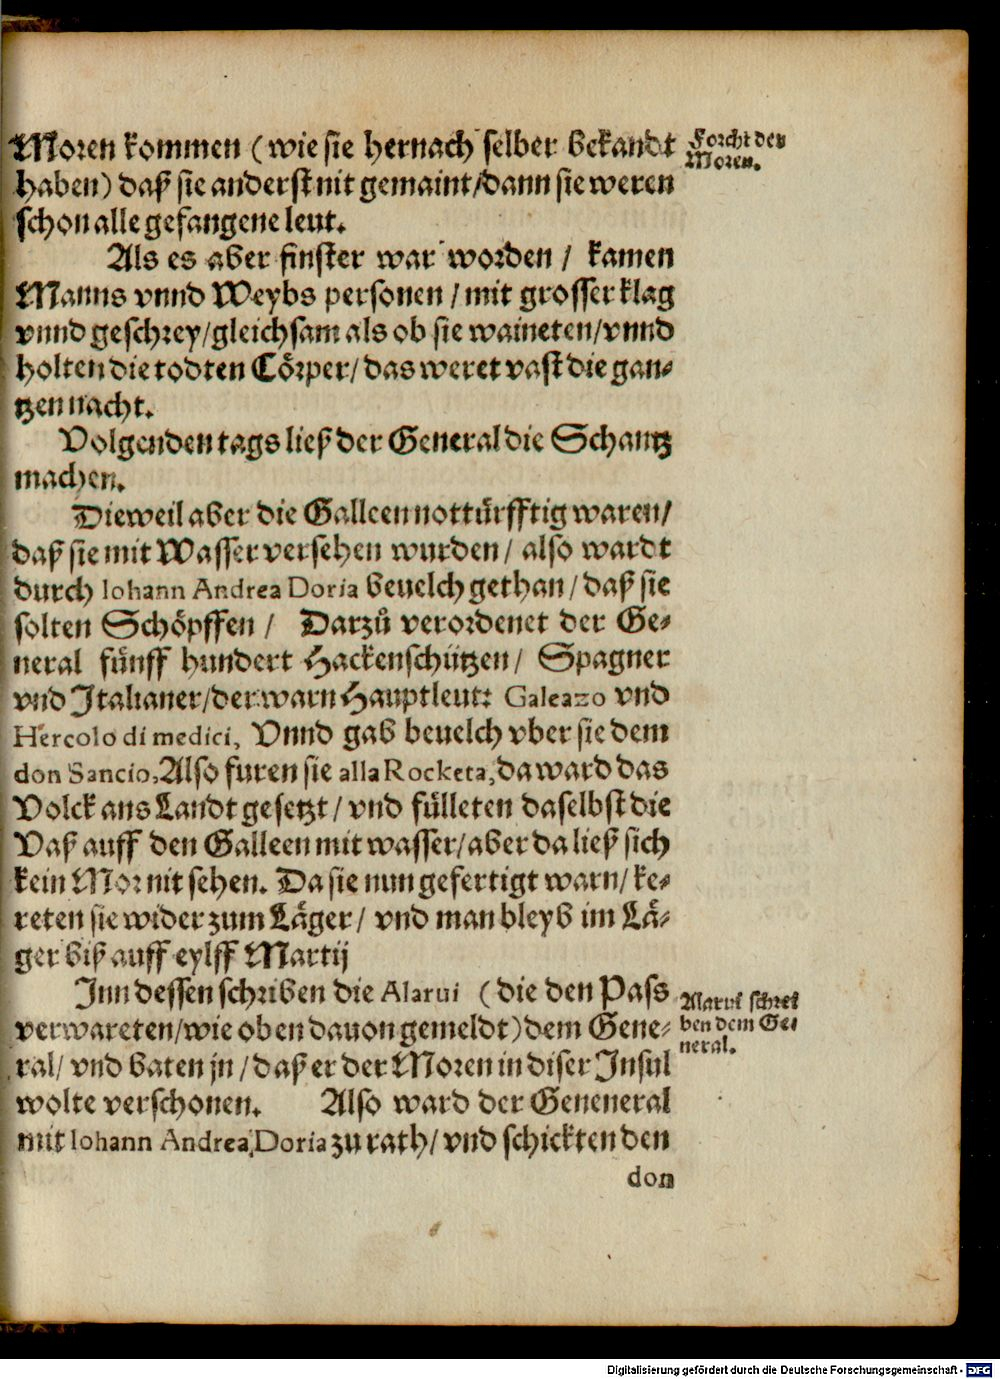 Moren kommen (wie sie hernach selber bekandt
haben) daß sie anderst nit gemaint/dann sie weren
schon alle gefangene leut.
Forcht der
Moren.
Als es aber finster war worden / kamen
Manns vnnd Weybs personen / mit grosser klag
vnnd geschrey/gleichsam als ob sie waineten/vnnd
holten die todten Cörper/ das weret vast die gan⸗
tzen nacht.
Volgenden tags ließ der General die Schantz
machen.
Dieweil aber die Galleen nottürfftig waren/
daß sie mit Wasser versehen wurden / also wardt
durch Iohann Andrea Doria beuelch gethan / daß sie
solten Schöpffen / Darzů verordenet der Ge⸗
neral fünff hundert Hackenschützen / Spagner
vnd Italianer/der warn Hauptleut: Galeazo vnd
Hercolo di medici, Vnnd gab beuelch vber sie dem
don Sancio, Also furen sie alla Rocketa, da ward das
Volck ans Landt gesetzt / vnd fülleten daselbst die
Vaß auff den Galleen mit wasser/aber da ließ sich
kein Mor nit sehen. Da sie nun gefertigt warn/ ke⸗
reten sie wider zum Läger / vnd man bleyb im Lä⸗
ger biß auff eylff Martij
Inn dessen schriben die Alarui (die den Pass
verwareten/wie oben dauon gemeldt) dem Gene⸗
ral/ vnd baten jn / daß er der Moren in diser Insul
wolte verschonen. Also ward der Geneneral
mit Iohann Andrea Doria zu rath/ vnd schickten den
Alarui schrei
ben dem Ge⸗
neral.
don
Digitalisierung gefördert durch die Deutsche Forschungsgemeinschaft - DFG